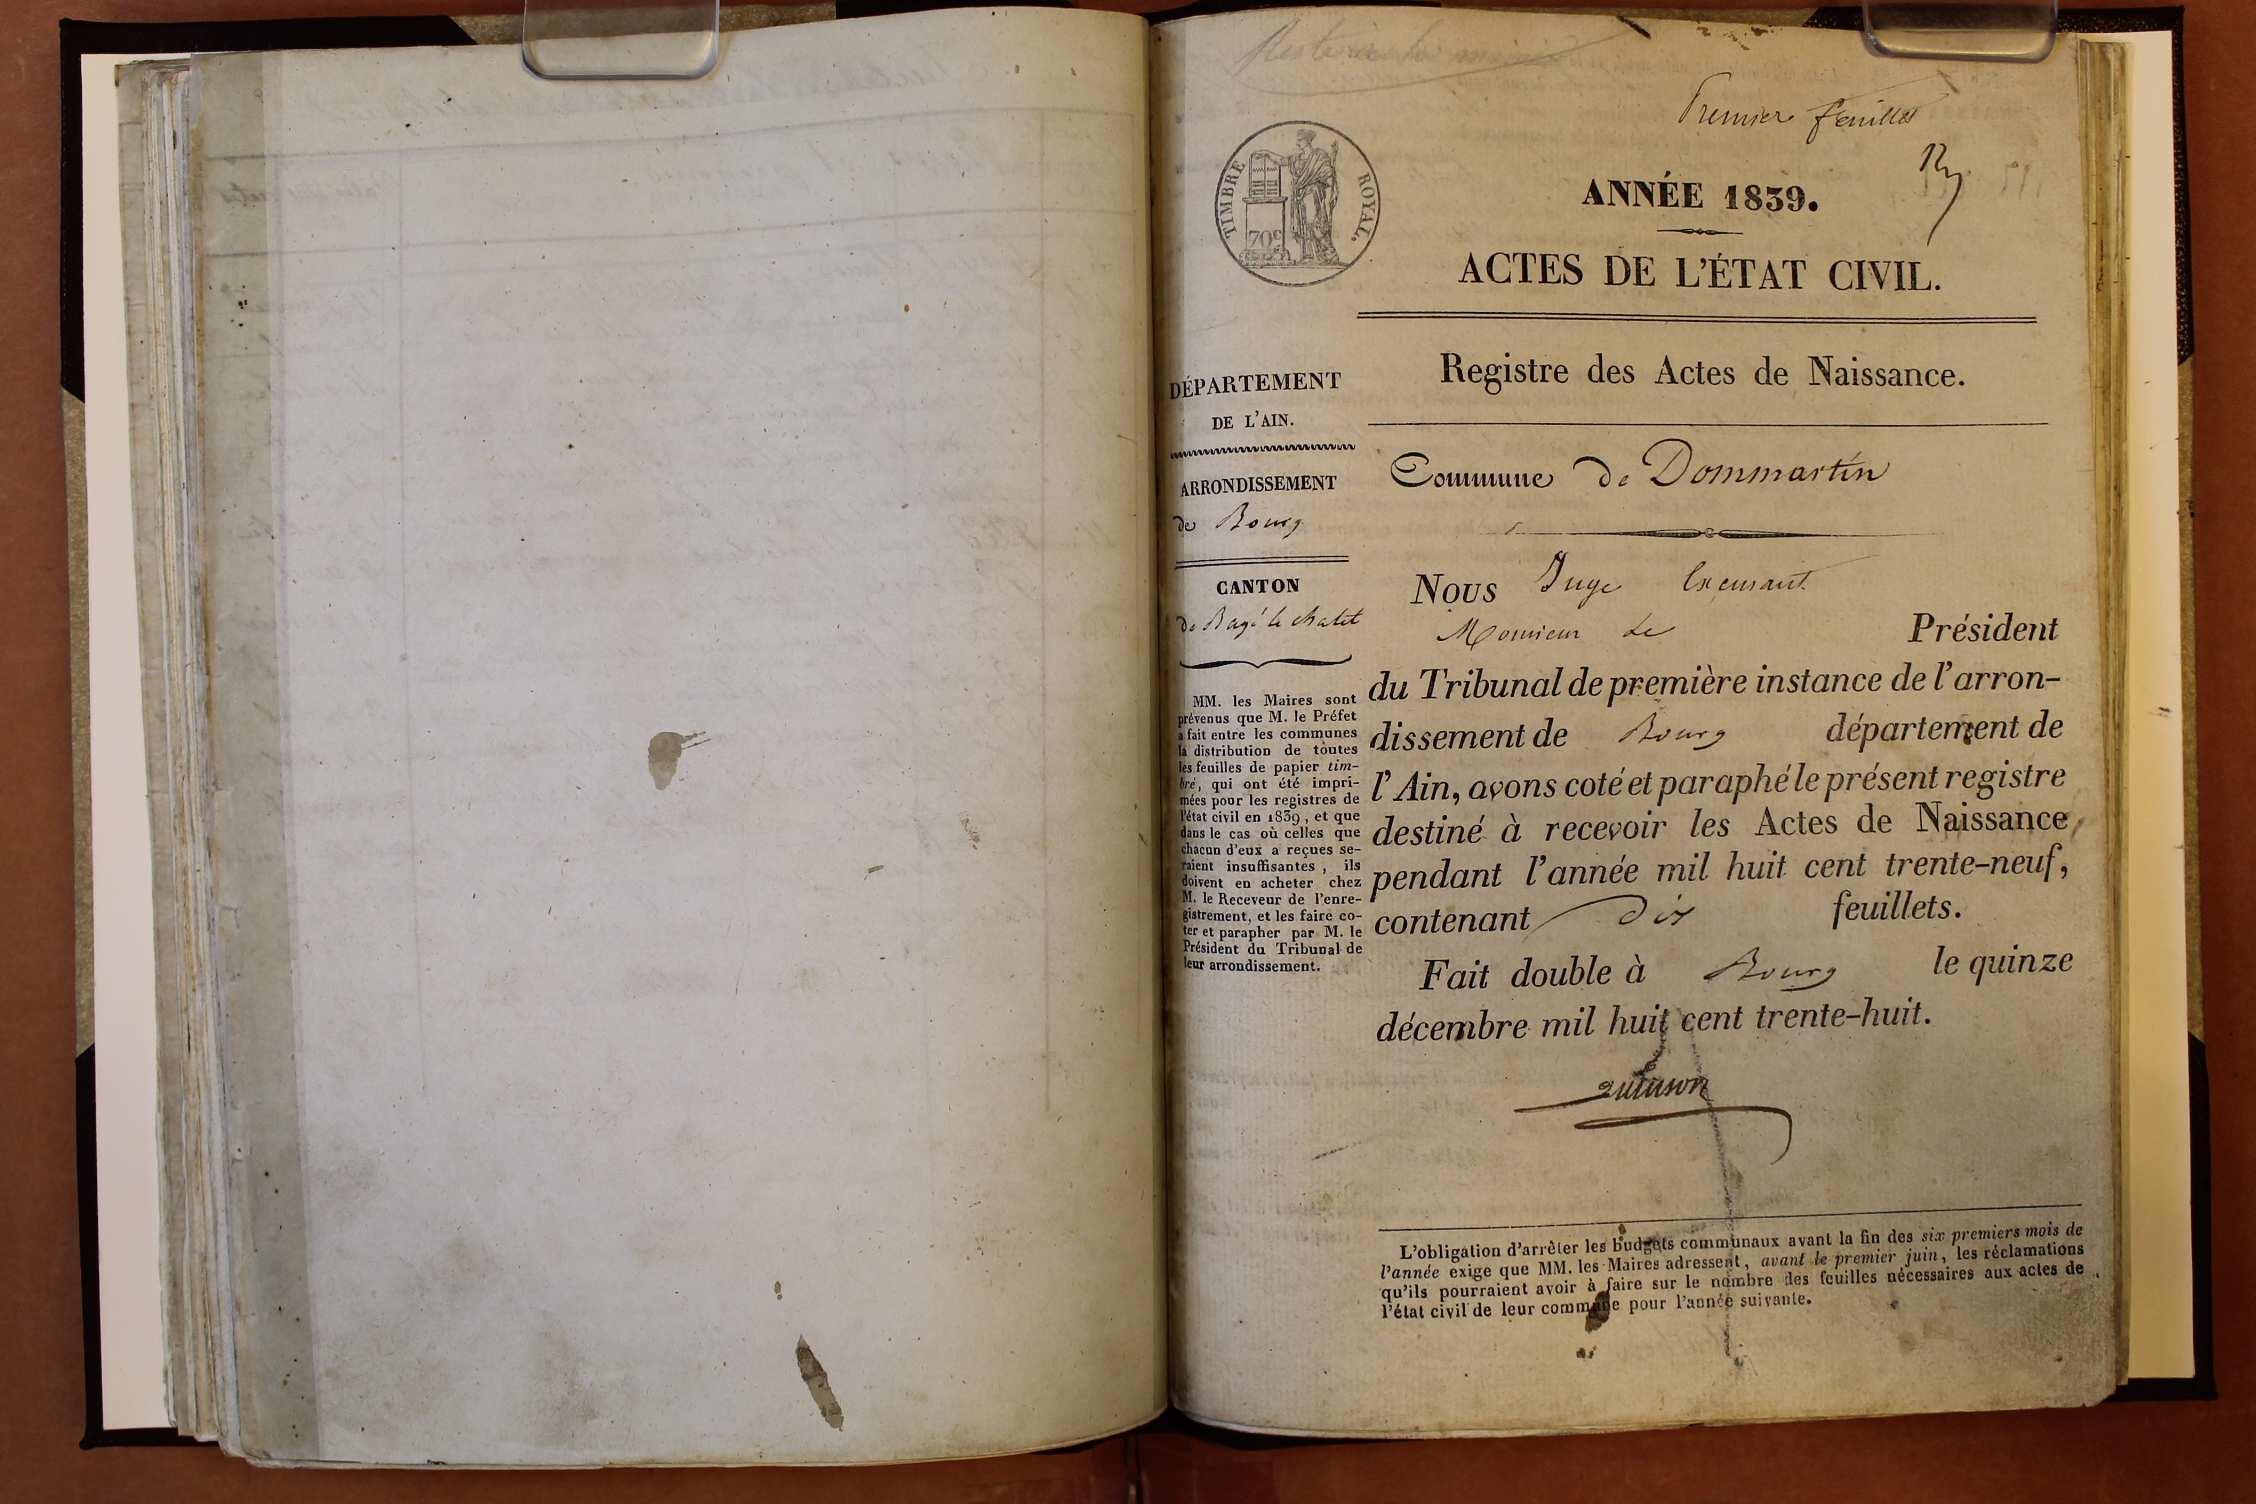 Reste à la mairie
Premier feuillet
TIMBRE ROYAL.
70c
ANNÉE 1839.
ACTES DE L'ÉTAT CIVIL.
Registre des Actes de Naissance.
DÉPARTEMENT
DE L'AIN.
ARRONDISSEMENT
de Bourg
CANTON
de Bagé le chatel
MM. les Maires sont
prévenus que M. le Préfet
a fait entre les communes
la distribution de toutes
les feuilles de papier tim-
bré, qui ont été impri-
mées pour les registres de
l'état civil en 1839, et que
dans le cas où celles que
chacun d'eux a reçues se-
raient insuffisantes, ils
doivent en acheter chez
M. le Receveur de l'enre-
gistrement, et les faire co-
ter et parapher par M. le
Président du Tribunal de
leur arrondissement.
Commune de Dommartin
Nous Juge
Monsieur le Président
du Tribunal de première instance de l'arron-
dissement de Bourg département de
l'Ain, avons coté et paraphé le présent registre
destiné à recevoir les Actes de Naissance
pendant l'année mil huit cent trente-neuf,
contenant dix feuillets.
Fait double à Bourg le quinze
décembre mil huit cent trente-huit.
L'obligation d'arrêter les budgets communaux avant la fin des six premiers mois de
l'année exige que MM. les Maires adressent, avant le premier juin, les réclamations
qu'ils pourraient avoir à faire sur le nombre des feuilles nécessaires aux actes de
l'état civil de leur commune pour l'année suivante.